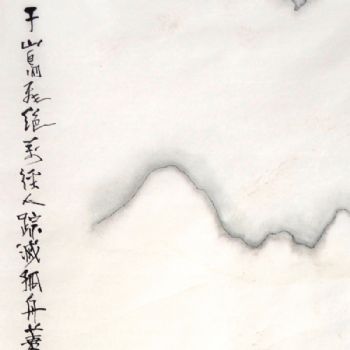 千山鳥飛絕萬徑人踪滅孤舟蓑